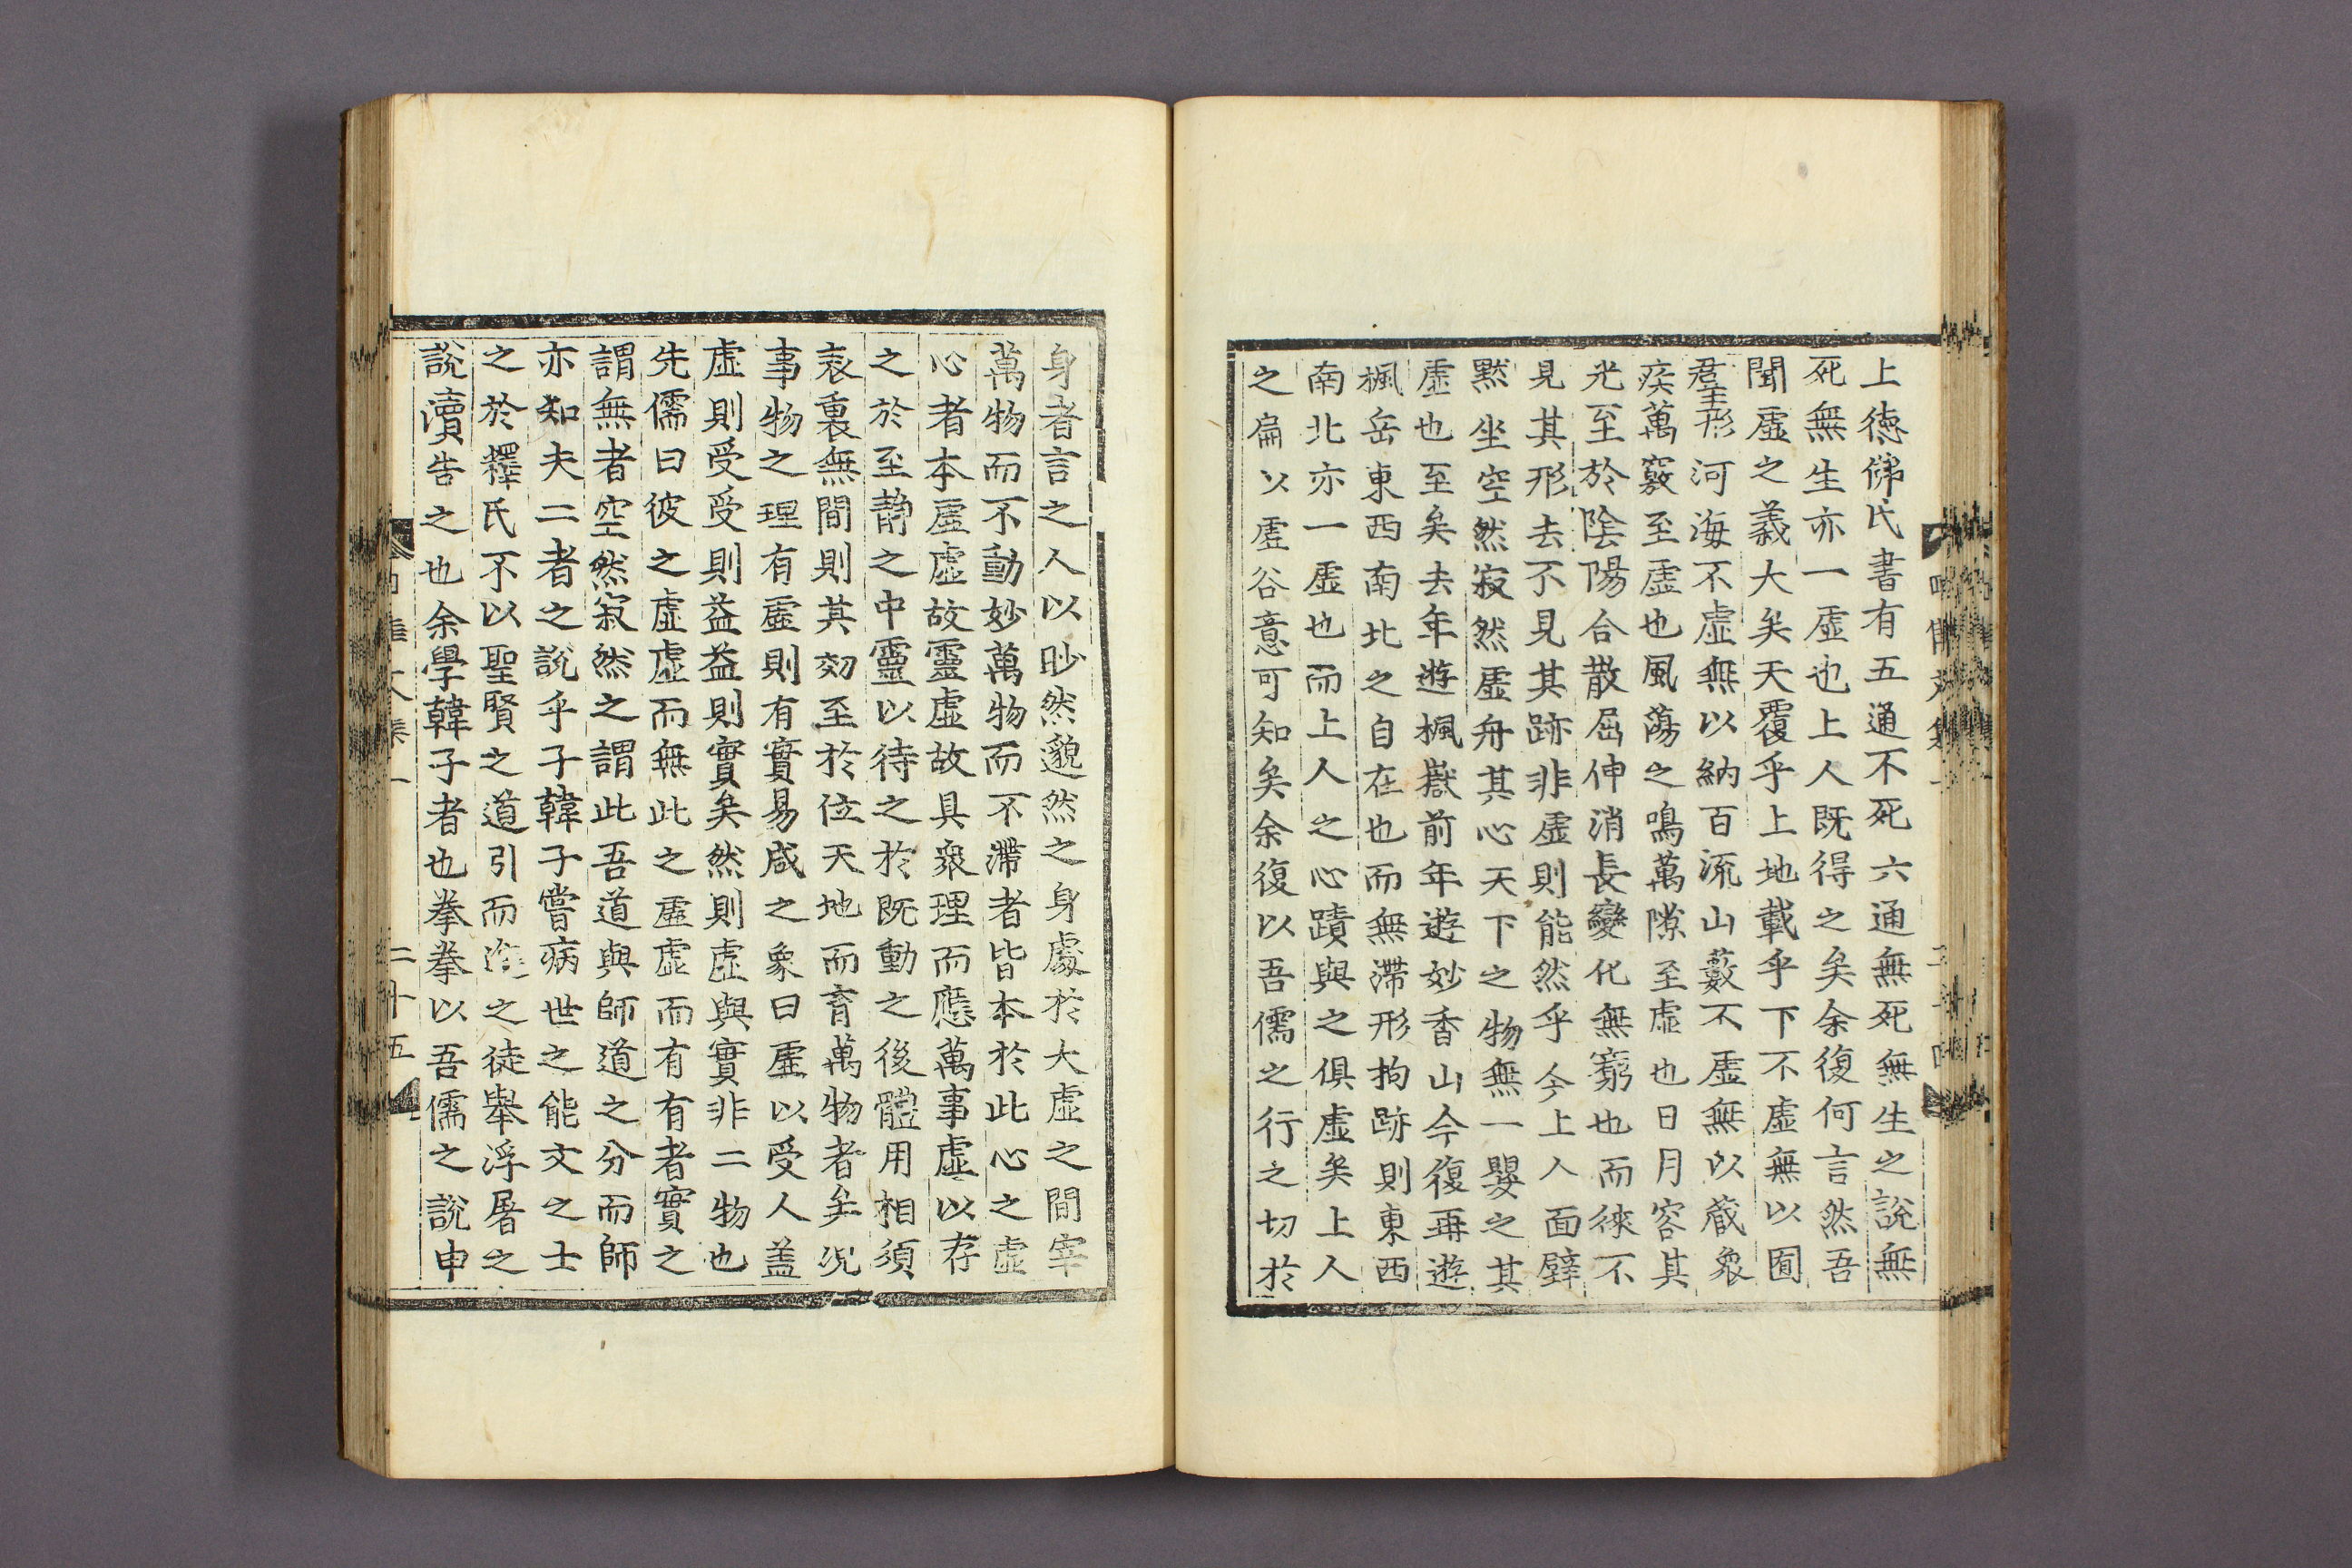 上德佛氏書有五通不死六通無死無生之說無
死無生亦一虛也上人既得之矣余復何言然吾
聞虛之義大矣天覆乎上地載乎下不虛無以囿
羣形河海不虛無以納百流山藪不虛無以蔵衆
疾萬竅至虛也風蕩之鳴萬隙至虛也日月容其
光至於陰陽合散屈伸消長變化無窮也而徠不
見其形去不見其跡非虛則能然乎今上人面壁
默坐空然寂然虛舟其心天下之物無一嬰之其
虛也至矣去年遊楓嶽前年遊妙香山今復再遊
楓岳東西南北之自在也而無滯形拘跡則東西
南北亦一虛也而上人之心蹟與之俱虛矣上人
之扁以虛谷意可知矣余復以吾儒之行之切於
身者言之人以眇然藐然之身處於大虛之間宰
萬物而不動妙萬物而不滯者皆本於此心之虛
心者本虛虛故靈虛故具衆理而應萬事虛以存
之於至靜之中靈以待之於既動之後體用相須
表裏無間則其効至於位天地而育萬物者矣况
事物之理有虛則有實易咸之象曰虛以受人盖
虛則受受則益益則實矣然則虛與實非二物也
先儒曰彼之虛虛而無此之虛虛而有有者實之
謂無者空然寂然之謂此吾道與師道之分而師
亦知夫二者之說乎子韓子嘗病世之能文之士
之於釋氏不以聖賢之道引而進之徒舉浮屠之
說瀆告之也余學韓子者也拳拳以吾儒之說申
文集 一
二十五